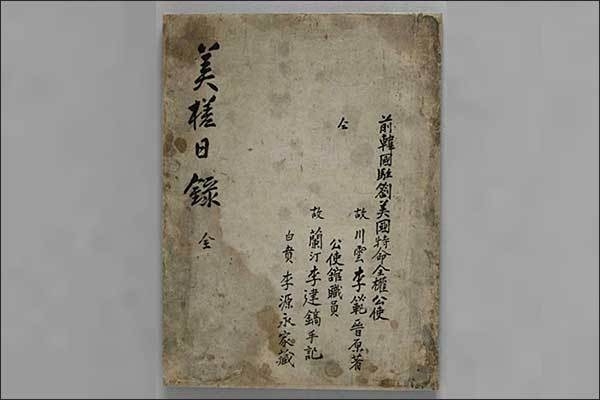 美槎日錄 全
前韓國駐劄美國特命全權公使
故 川雲 李範晉 原著
仝 公使舘職員
故 蘭汀 李建鎬 手記
白賁 李源永 家藏